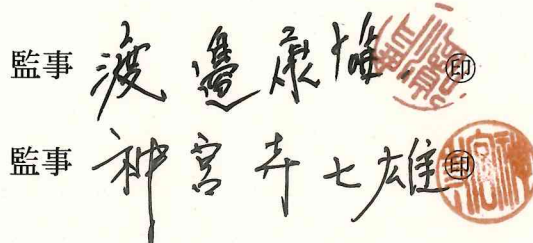 監事 渡邉康惟 ㊞
監事 神宮寺七雄 ㊞